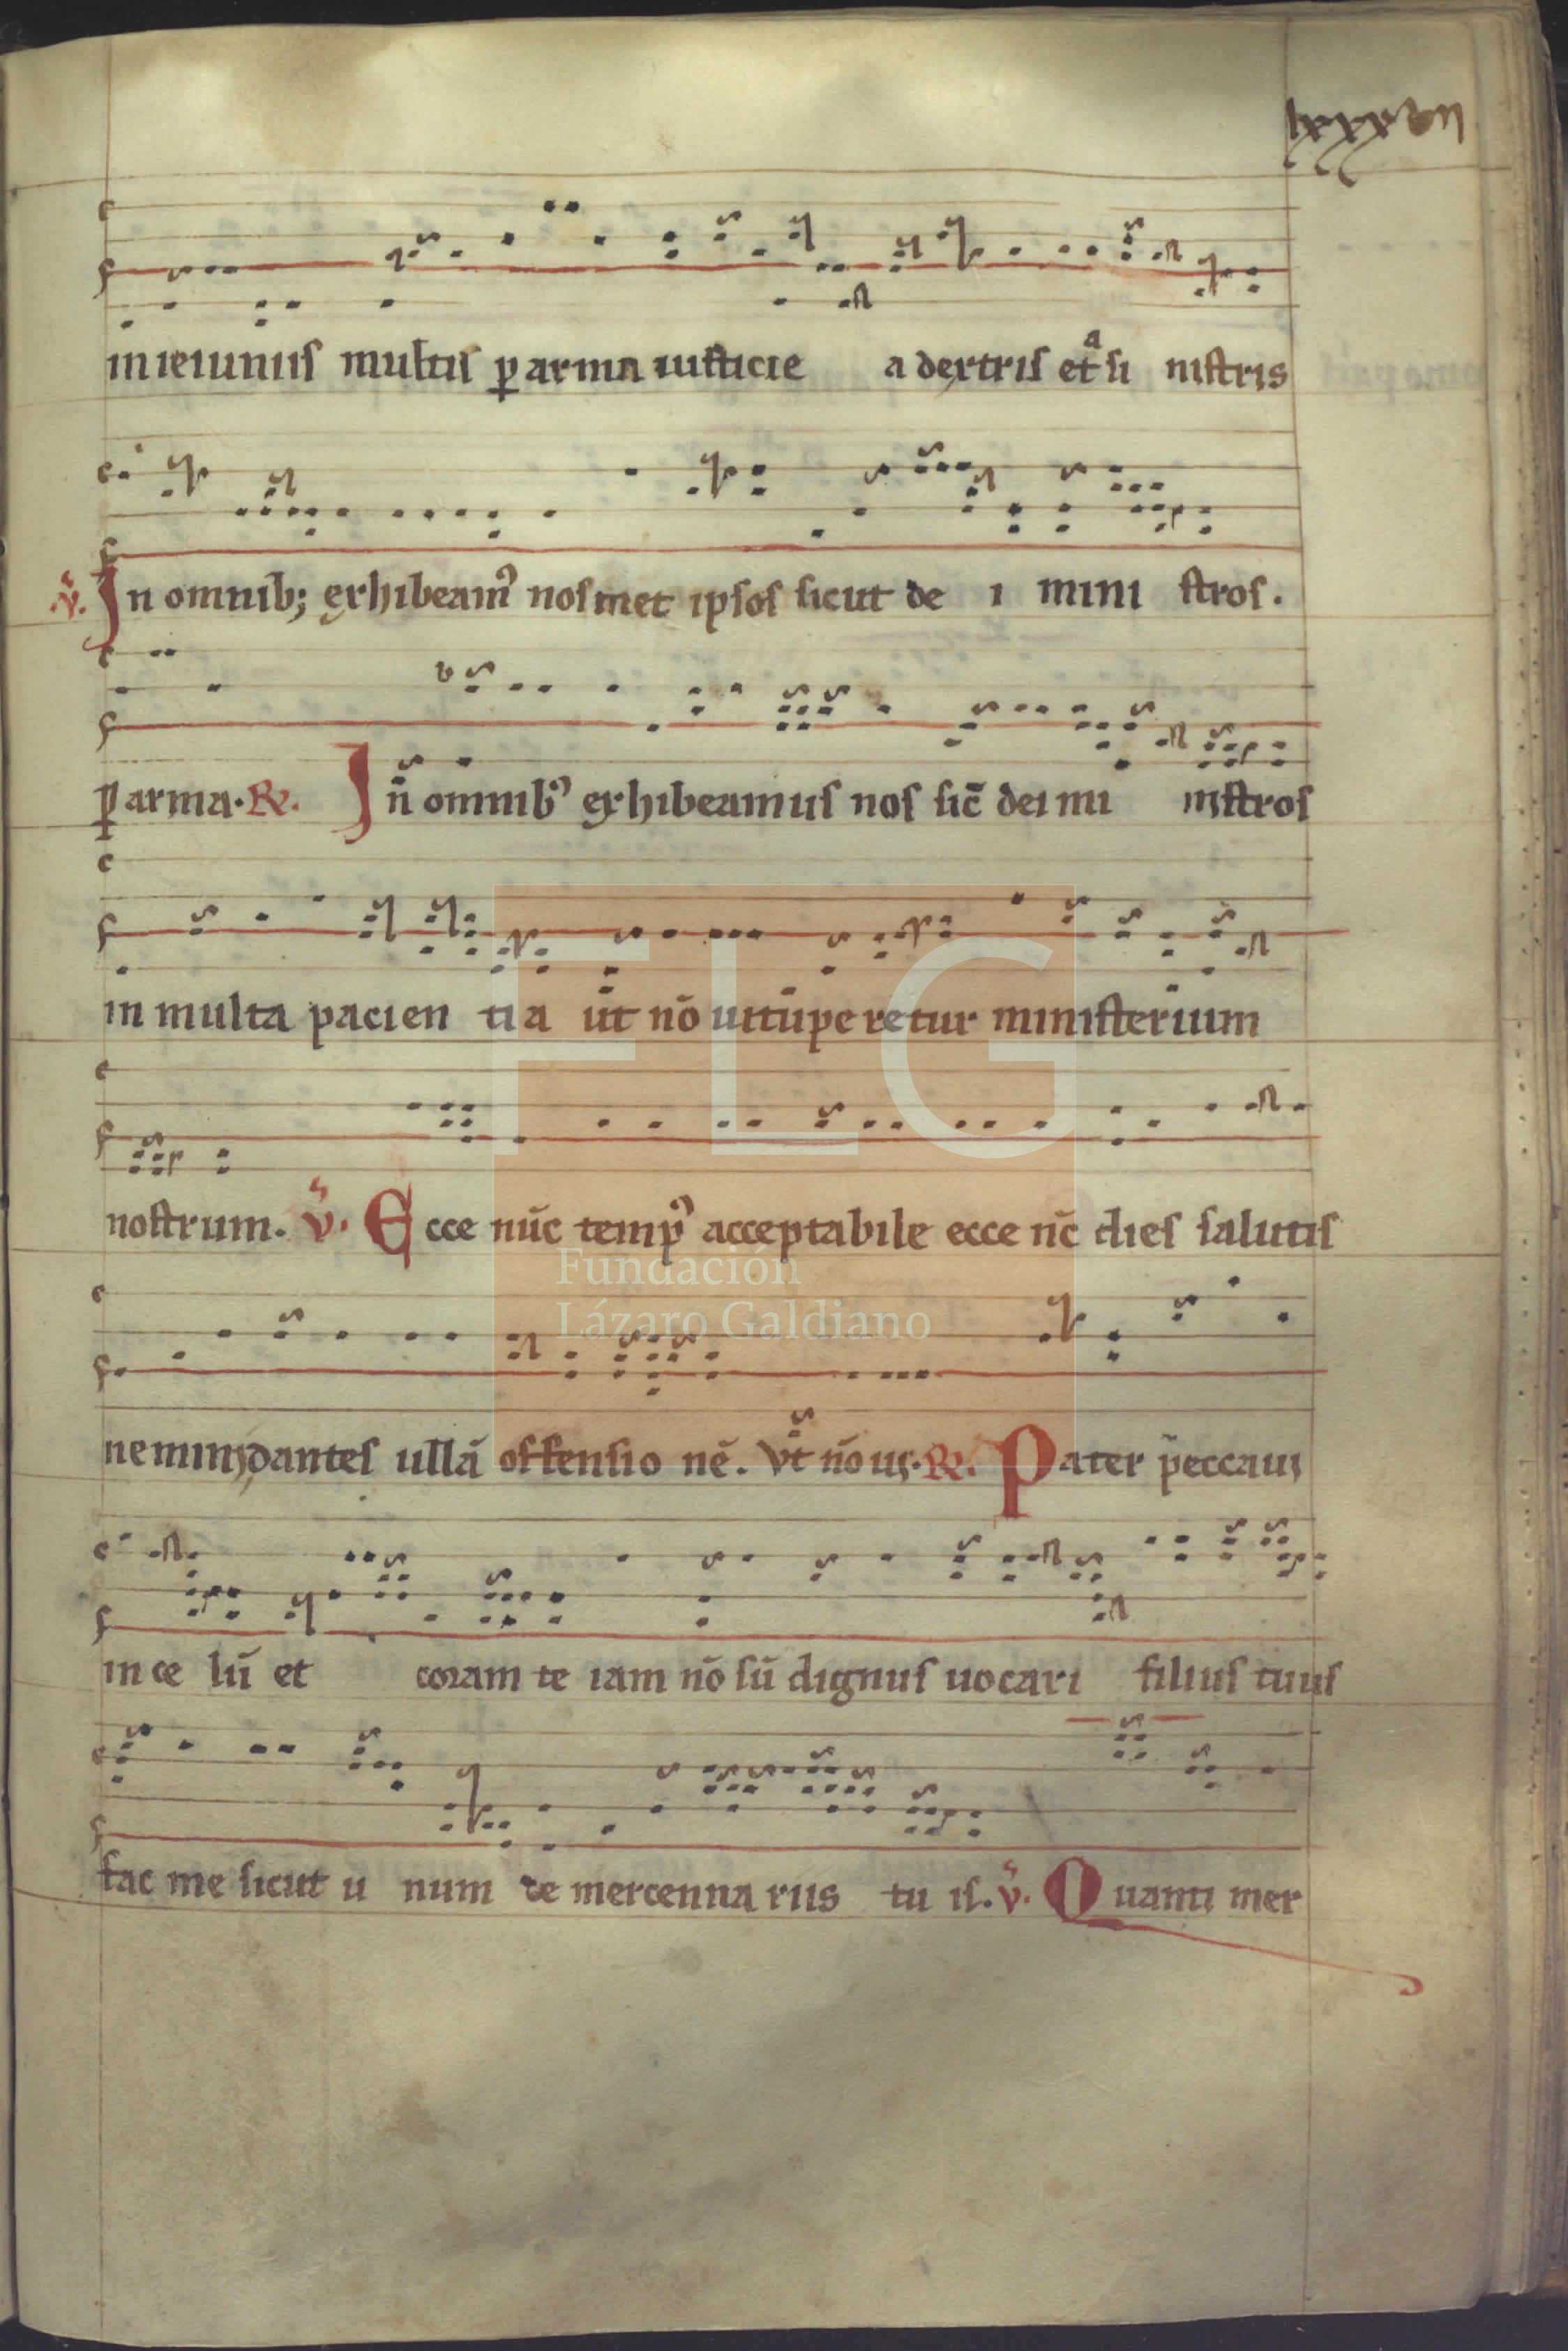 lxxxxvii
in ieiuniis multis ꝑ arma iusticie a dextris et a sinistris
℣. In omnib; exhibeamꝰ nosmet ipsos sicut dei ministros.
ꝑ arma. ℟. In̄ omnibꝰ exhibeamus nos sic̄ dei ministros
in multa paciencia ut nō uitupe retur ministerium
nostrum. ℣. Ecce nūc tempꝰ acceptabile ecce nc̄ dies salutis
nemini dantes ullā offensionē. Vt nō ui. ℟. Pater peccaui
in celū et coram te iam nō sū dignus uocari filius tuus
fac me sicut unum de mercennariis tuis. ℣. Quanti mer
FLG
Fundación
Lázaro Galdiano